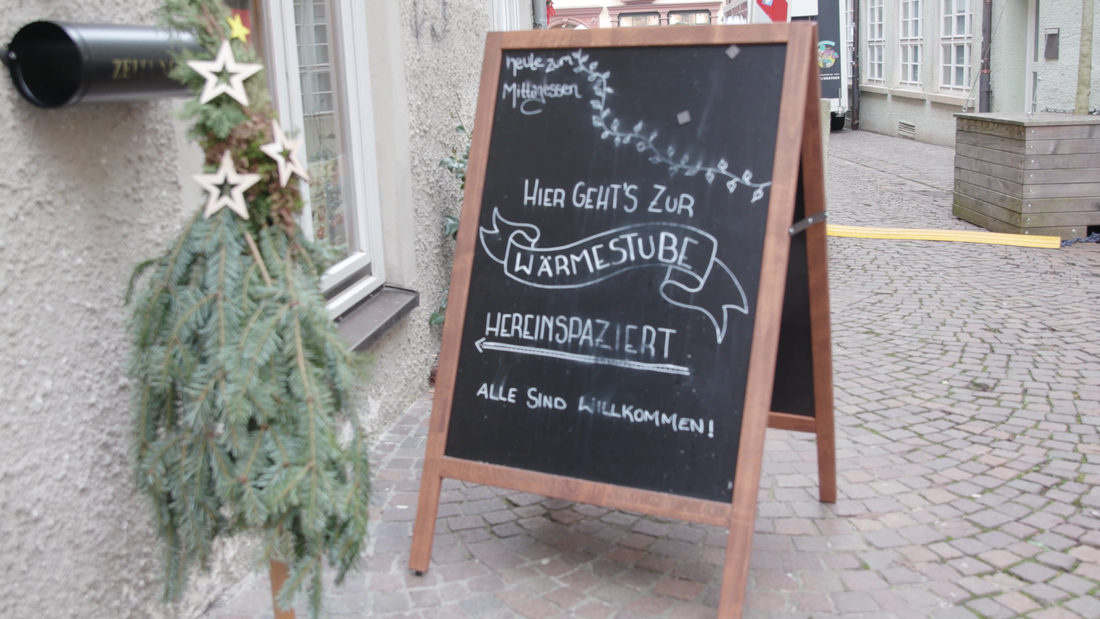 heute zum
Mittagessen
HIER GEHT'S ZUR
WÄRMESTUBE
HEREINSPAZIERT
ALLE SIND WILLKOMMEN!